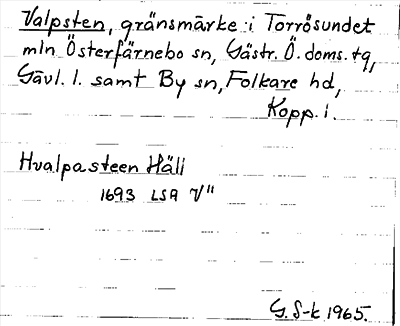 Valpsten, gränsmärke i Torrösundet
mln Österfärnebo sn, Gästr. Ö. doms. tg,
Gävl. l. samt By sn, Folkare hd,
Kopp. l.
Hvalpasteen Häll
1693 LSA V"
G. S-k 1965.